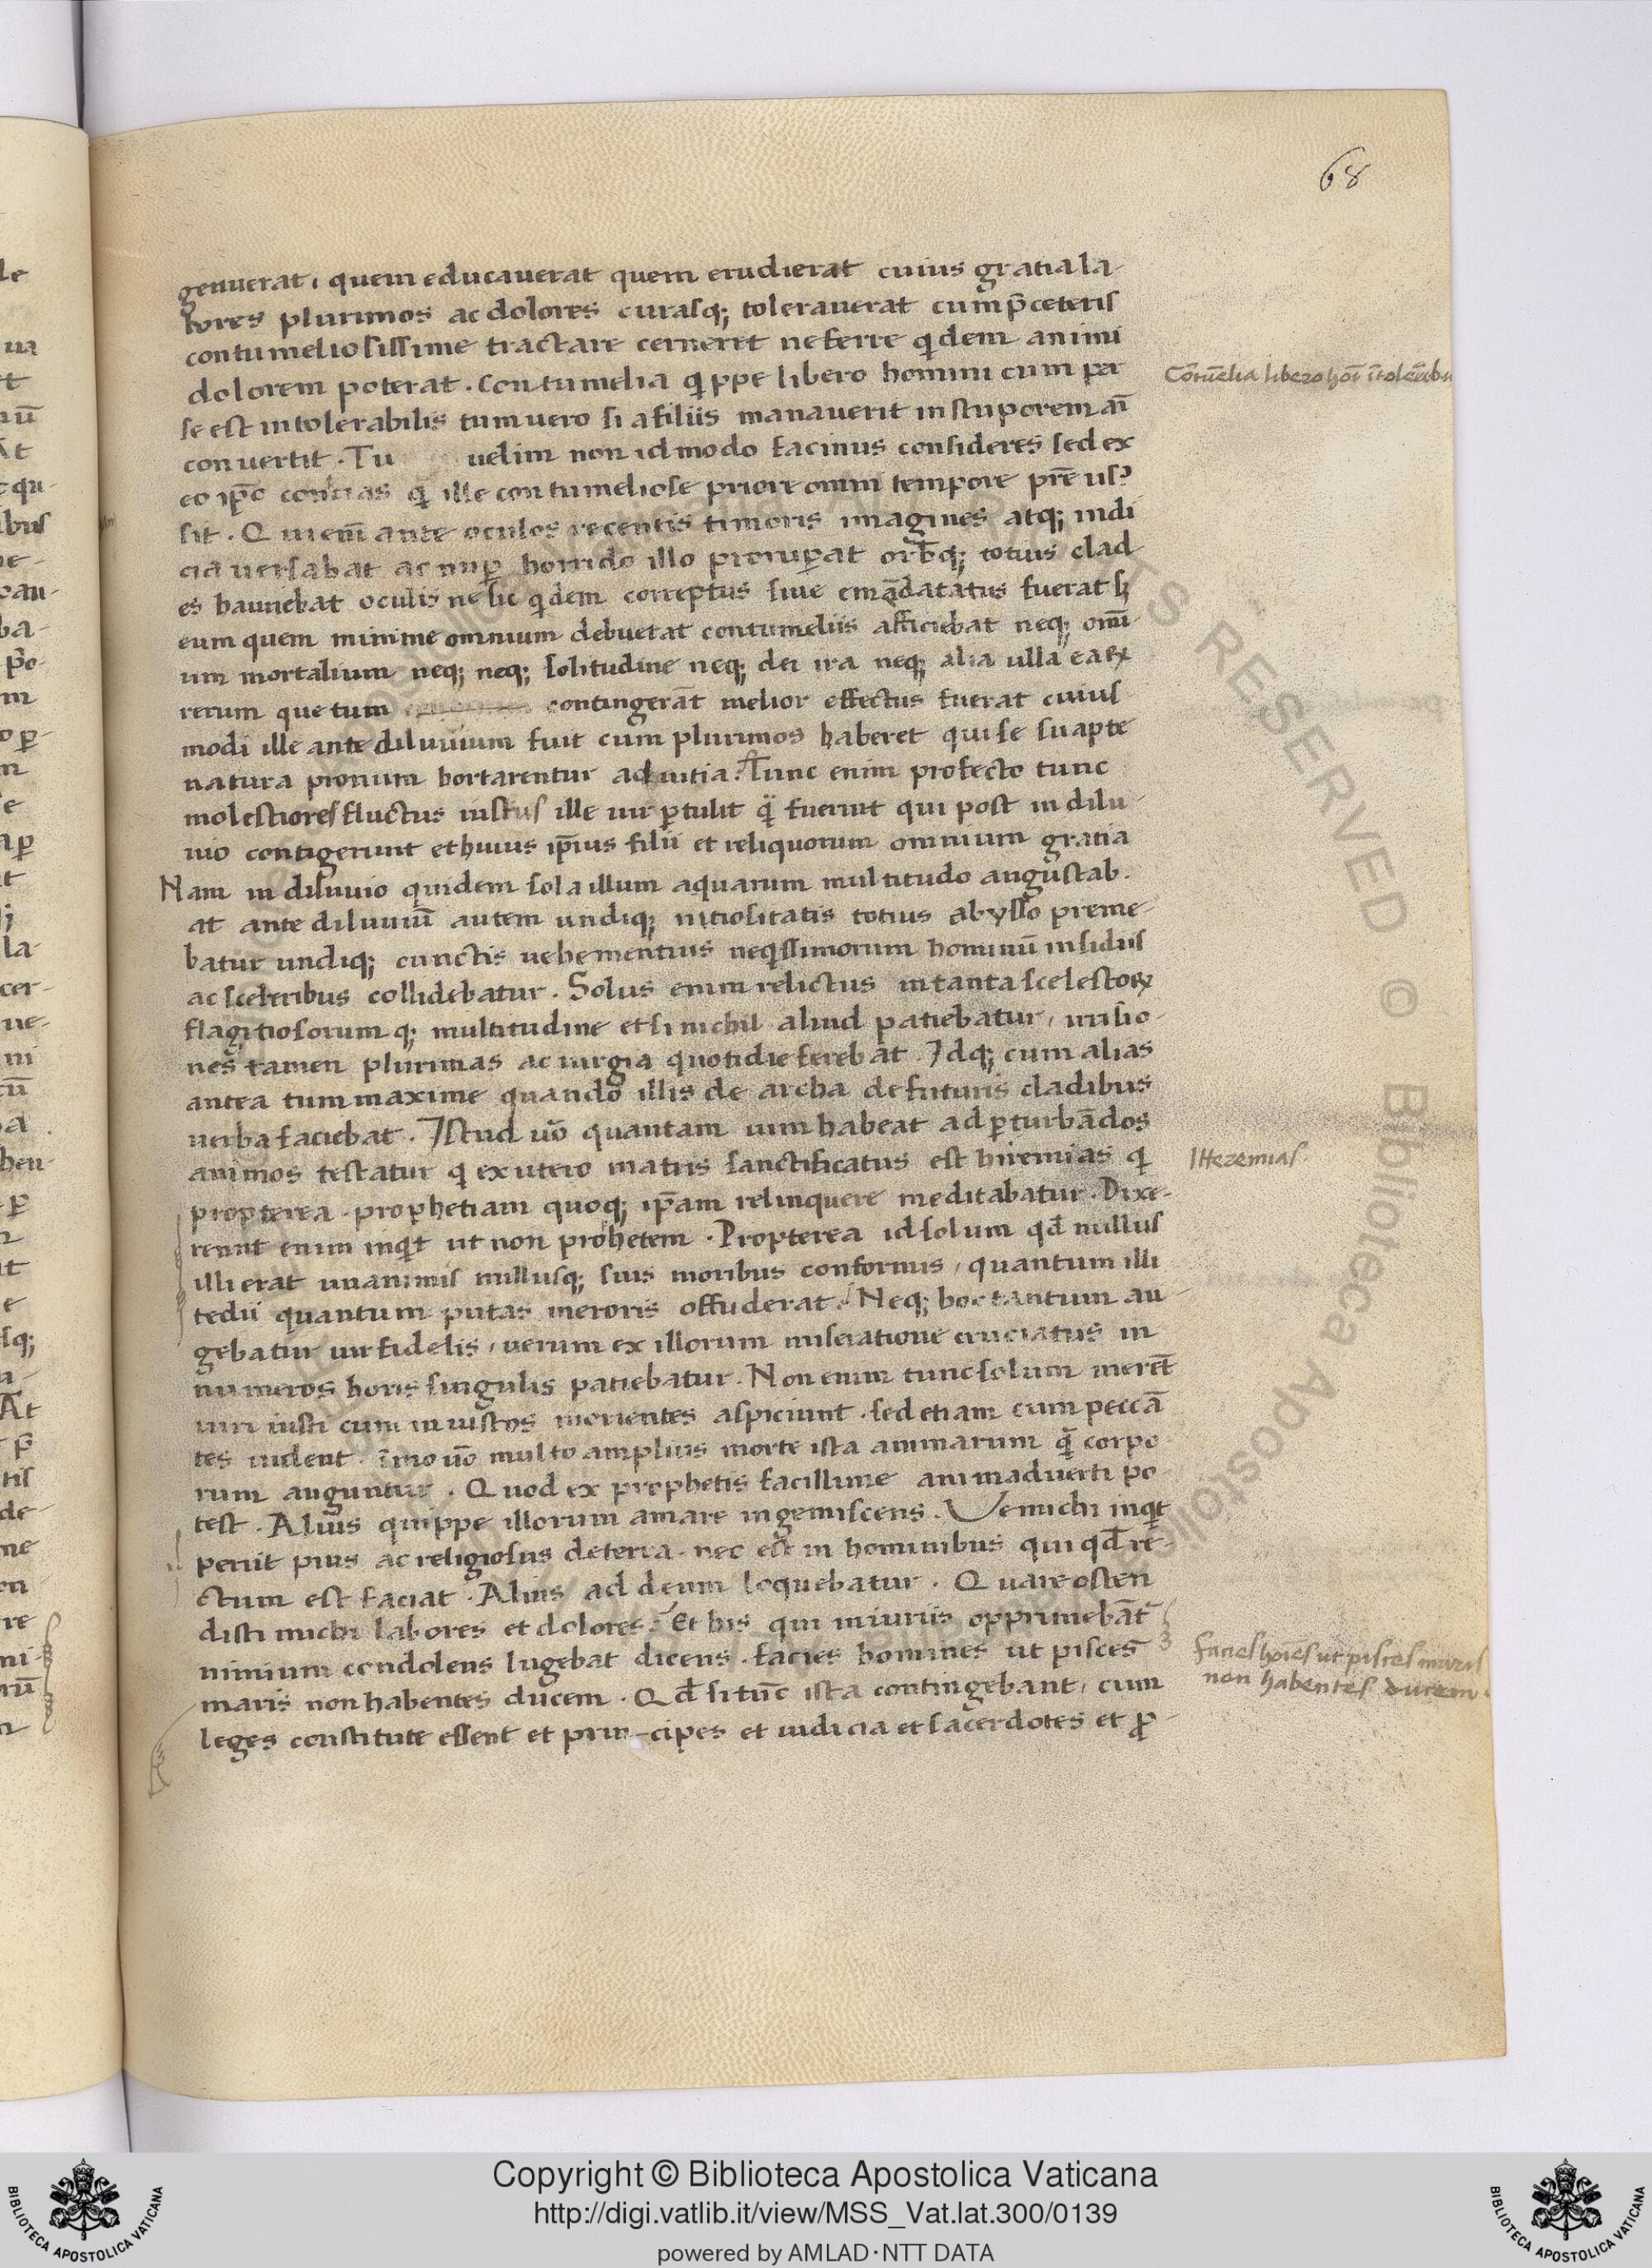 68
genuerat, quem educauerat quem erudierat cuius gratia la-
bores plurimos ac dolores curasq; tolerauerat cum p̄ceteris
contumeliosissime tractare cerneret ne ferre qidem animi
dolorem poterat. Contumelia qippe libero homini cum per
se est intolerabilis tum uero si a filiis manauerit in stuporem aī
conuertit. Tu uelim non id modo facinus consideres sed ex
eo ip̄o conicias qi ille contumeliose priore omni tempore
sit. Qui em̄ ante oculos recentis timoris imagines atq; indi
cia uersabat ac nuper horrido illo proruperat orbēq; totius clad
es hauriebat oculis ne sic qidem correptus siue fuerat sꝫ
eum quem minime omnium debuerat contumeliis afficiebat neq; omi
um mortalium neq; neq; solitudine neq; dei ira neq; alia ulla earꝝ
rerum que tum contingerāt melior effectus fuerat cuius
modi ille ante diluuium fuit cum plurimos haberet qui se suapte
natura pronum hortarentur ad uitia? Tunc enim profecto tunc
molestiores fluctus iustus ille uir ꝑtulit qͣ̄ fuerint qui post in dilu
uio contigerunt et huius ip̄ius filii et reliquorum omnium gratia
Nam in diluuio quidem sola illum aquarum multitudo angustab.
at ante diluuiū autem undiq; uitiositatis totius abysso preme
batur undiq; cunctis uehementius neqissimorum hominū insidiis
ac sceleribus collidebatur. Solus enim relictus in tanta scelestorꝝ
flagitiosorumq; multitudine etsi nichil aliud patiebatur, irrisio-
nes tamen plurimas ac iurgia quotidie ferebat. Idq; cum alias
antea tum maxime quando illis de archa de futuris cladibus
uerba faciebat. Istud uo̅ quantam uim habeat ad ꝑturbādos
animos testatur qi ex utero matris sanctificatus est hiremias qi
propterea prophetiam quoq; ip̄am relinquere meditabatur. Dixe-
runt enim inqit ut non prohetem. Propterea id solum qd̄ nullus
illi erat unanimis nullusq; suis moribus conformis, quantum illi
tedii quantum putas meroris offuderat? Neq; hoc tantum au
gebatur uir fidelis, uerum ex illorum miseratione cruciatus in
numeros horis singulis patiebatur. Non enim tunc solum merēt
uiri iusti cum iniustos morientes aspiciunt. sed etiam cum peccā
tes uident. īmo uo̅ multo amplius morte ista animarum qͣ̄ corpo
rum anguntur. Quod ex prophetis facillime animaduerti po
test. Alius quippe illorum amare ingemiscens. Ve michi inqit
periit pius ac religiosus de terra. nec est in hominibus qui qd̄ re-
ctum est faciat. Alius ad deum loquebatur. Quare osten
disti michi labores et dolores? Et his qui iniuriis opprimebāt
nimium condolens lugebat dicens. facies homines ut pisces
maris non habentes ducem. Qd̄ si tūc ista contingebant, cum
leges constitute essent et prin-cipes et iudicia et sacerdotes et ꝓ
Hieremias.
facies hoīes ut pisces maris
non habentes ducem.
RESERVED © Biblioteca Apostolica
Copyright © Biblioteca Apostolica Vaticana
http://digi.vatlib.it/view/MSS_Vat.lat.300/0139
powered by AMLAD·NTT DATA
BIBLIOTECA APOSTOLICA VATICANA
BIBLIOTECA APOSTOLICA VATICANA